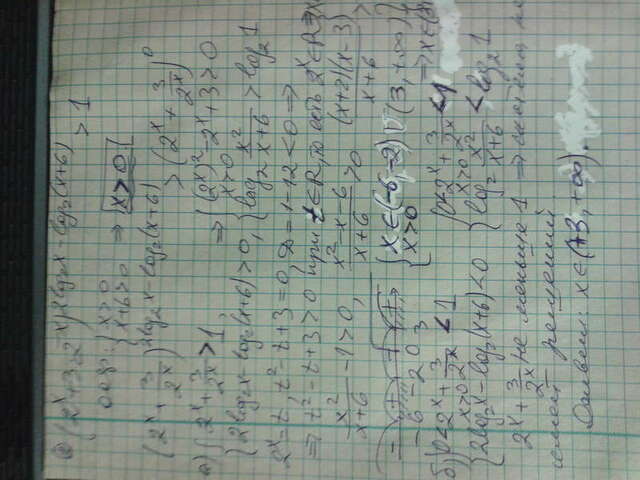 (2ˣ+3·2⁻ˣ)^(2log₂x-log₂(x+6)) > 1
ООУ: { x>0
x+6>0 ⇒ x>0
(2ˣ+3/2ˣ)^(2log₂x-log₂(x+6)) > (2ˣ+3/2ˣ)⁰
а) { 2ˣ+3/2ˣ>1, ⇒ { (2ˣ)²-2ˣ+3>0
x>0
{ 2log₂x-log₂(x+6)>0, { log₂ x²/(x+6) > log₂1
2ˣ=t, t²-t+3=0 D=1-12<0 ⇒
⇒ t²-t+3>0 при t∈R, то есть 2ˣ∈R
x²/(x+6) -1>0, (x²-x-6)/(x+6) >0 (x+2)(x-3)/(x+6) >
- + - +
-6 -2 0 3
{ x∈(-6,-2)∪(3,+∞)
x>0 ⇒ x∈(3
б) { 0<2ˣ+3/2ˣ<1 { 0<2ˣ+3/2ˣ<1
x>0 x>0
{ 2log₂x-log₂(x+6)<0 { log₂ x²/(x+6) < log₂1
2ˣ+3/2ˣ не меньше 1 ⇒ система не
имеет решений
Ответ: x∈(3,+∞).